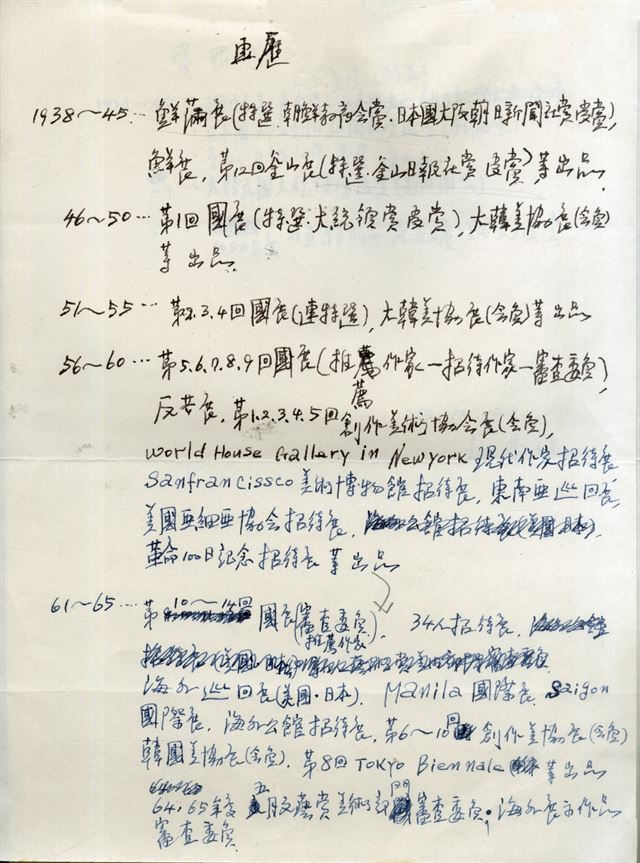 畫歷
1938～45… 鮮滿展(特選. 朝鮮教育会賞・日本國大阪朝日新聞社賞受賞),
鮮展, 第12回釜山展(特選・釜山日報社賞受賞)等出品
46～50… 第1回 國展(特選・大統領賞受賞), 大韓美協展(会員)
等出品.
51～55… 第2.3.4回國展(連特選), 大韓美協展(会員)等出品
56～60… 第5.6.7.8.9回國展(推薦作家－招待作家－審査委員),
薦
反共展, 第1.2.3.4.5回創作美術協会展(会員),
World House Gallery in New York 現代作家招待展
Sanfrancissco 美術博物館招待展, 東南亜巡回展,
美國亜細亜協会招待展, 海外公館招待展(美國・日本),
革命100日紀念招待展等出品
61～65… 第10～14回國展(審査委員), 34人招待展,
推薦作家
海外巡回展(美國・日本). Manila國際展, Saigon
國際展, 海外公館招待展, 第6～10回創作美協展(会員)
韓國美協展(会員). 第8回 TOKYO Biennale 等出品
64.65年度 五月文藝賞美術部門審査委員, 海外展示作品
審査委員